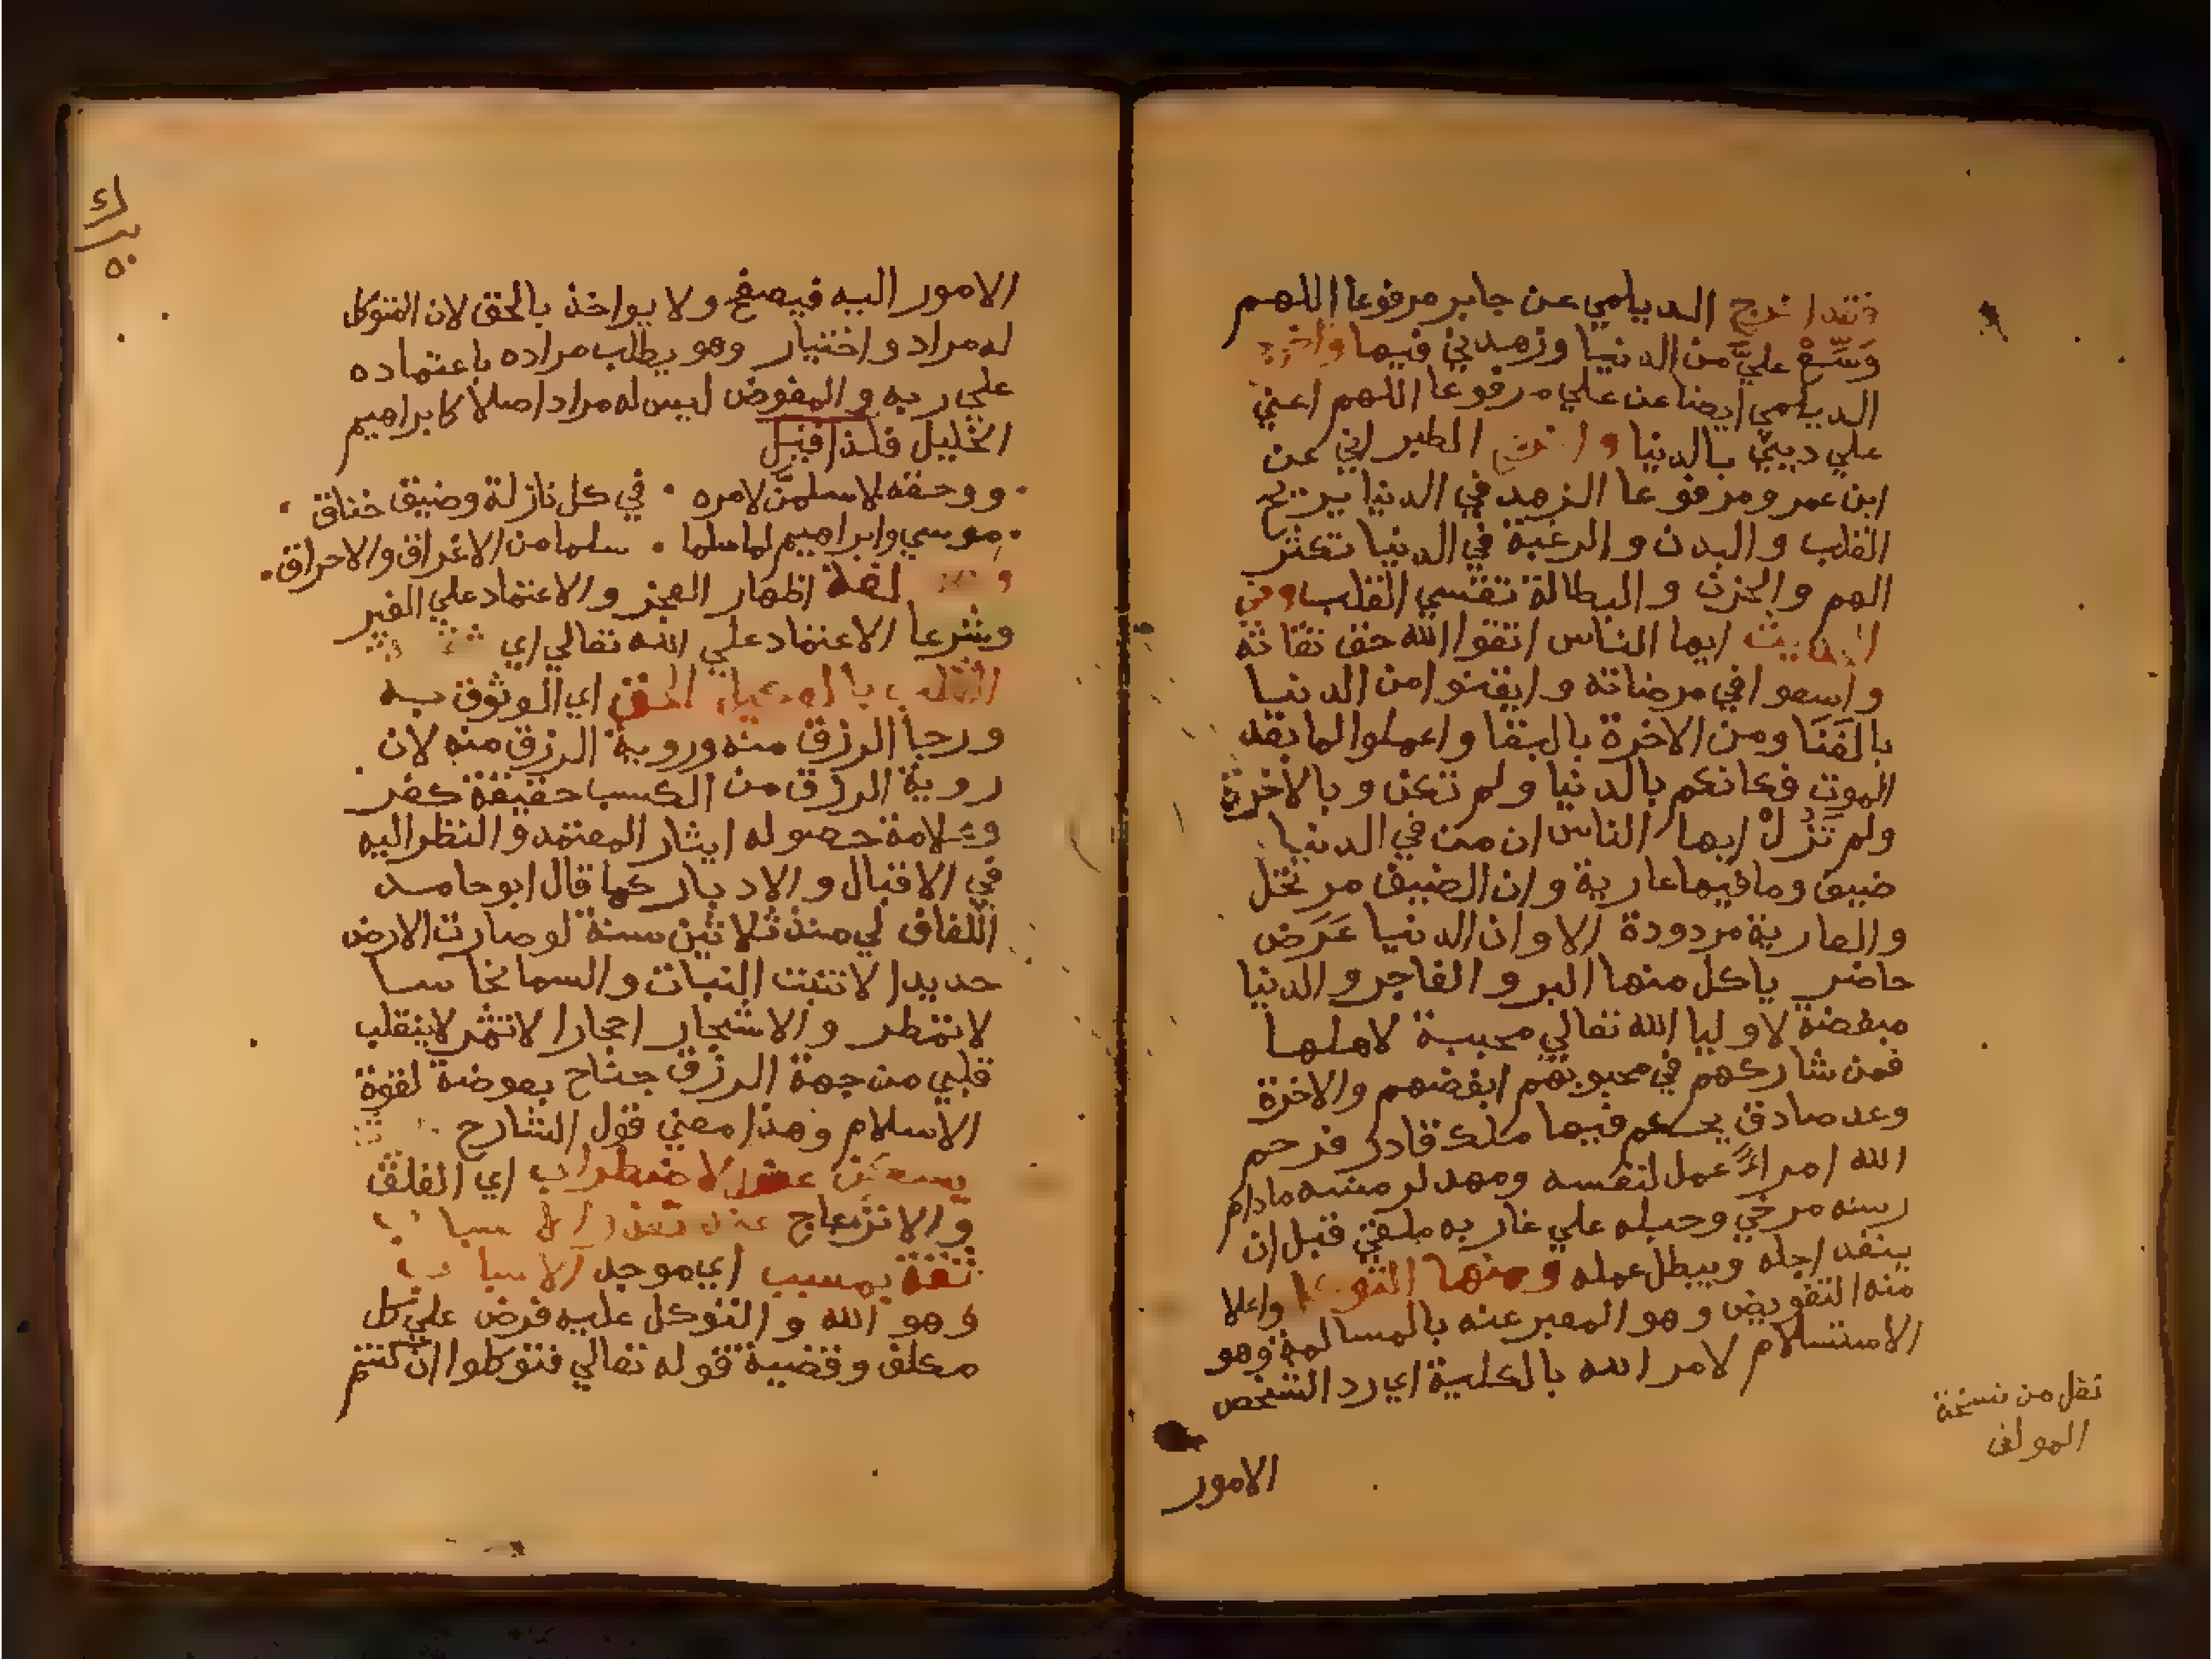 فقد اخرج الديلمي عن جابر مرفوعا اللهم
وَسِّعْ عليَّ من الدنيا وزهدني فيها واخرج
الديلمي ايضا عن علي مرفوعا اللهم اعني
علي ديني بالدنيا واخرج الطبراني عن
ابن عمرو مرفوعا الزهد في الدنيا يريح
القلب والبدن والرغبة في الدنيا تكثر
الهم والحزن والبطالة تقسي القلب وفي
الحديث ايها الناس اتقوا الله حق تقاته
واسعوا في مرضاته وايقنوا من الدنيا
بالفَنَا ومن الاخرة بالبقا واعملوا لما بعد
الموت فكانكم بالدنيا ولم تكن وبالاخرة
ولم تَزُلْ ايها الناس ان من في الدنيا
ضيق وما فيها عارية وان الضيف مرتحل
والعارية مردودة الا وان الدنيا عَرَض
حاضر ياكل منها البر والفاجر والدنيا
مبغضة لاوليا الله تعالي محببة لاهلها
فمن شاركهم في محبوبهم ابغضهم والاخرة
وعد صادق يحكم فيها ملك قادر فرحم
الله امراءً عمل لنفسه ومهد لرمسه مادام
رسنه مرخي وحبله علي غاربه ملقي قبل ان
ينفد اجله ويبطل عمله ومنها التوكل واعلا
منه التفويض وهو المعبر عنه بالمسالمة وهو
الاستسلام لامر الله بالكلية اي رد الشخص
الامور
نقل من نسخة
المولف
الامور اليه فيصفح ولا يواخذ بالحق لان المتوكل
له مراد واختيار وهو يطلب مراده باعتماده
علي ربه والمفوض ليس له مراد اصلا كابراهيم
الخليل فلذا قيل
ووحقه لاسلمنّ لامره في كل نازلة وضيق خناق
موسي وابراهيم لما سلما سلما من الاغراق والاحراق
لغة اظهار العجز والاعتماد علي الغير
وشرعا الاعتماد علي الله تعالي اي
القلب بالوكيل الحق اي الوثوق به
ورجا الرزق منه وروية الرزق منه لان
روية الرزق من الكسب حقيقة كفر
وعلامة حصوله ايثار المعتمد والنظر اليه
في الاقبال والادبار كما قال ابو حامد
اللفاف لي منذ ثلاثين سنة لو صارت الارض
حديدا لا تنبت النبات والسما نحاسا
لا تمطر والاشجار احجارا لا تثمر لا ينقلب
قلبي من جهة الرزق جناح بعوضة لقوة
الاسلام وهذا معني قول الشارح
يسكن عن الاضطراب اي القلق
والانزعاج عند تعذر الاسباب
ثقة بمسبب اي موجد الاسباب
وهو الله والتوكل عليه فرض علي كل
مكلف وقضية قوله تعالي فتوكلوا ان كنتم